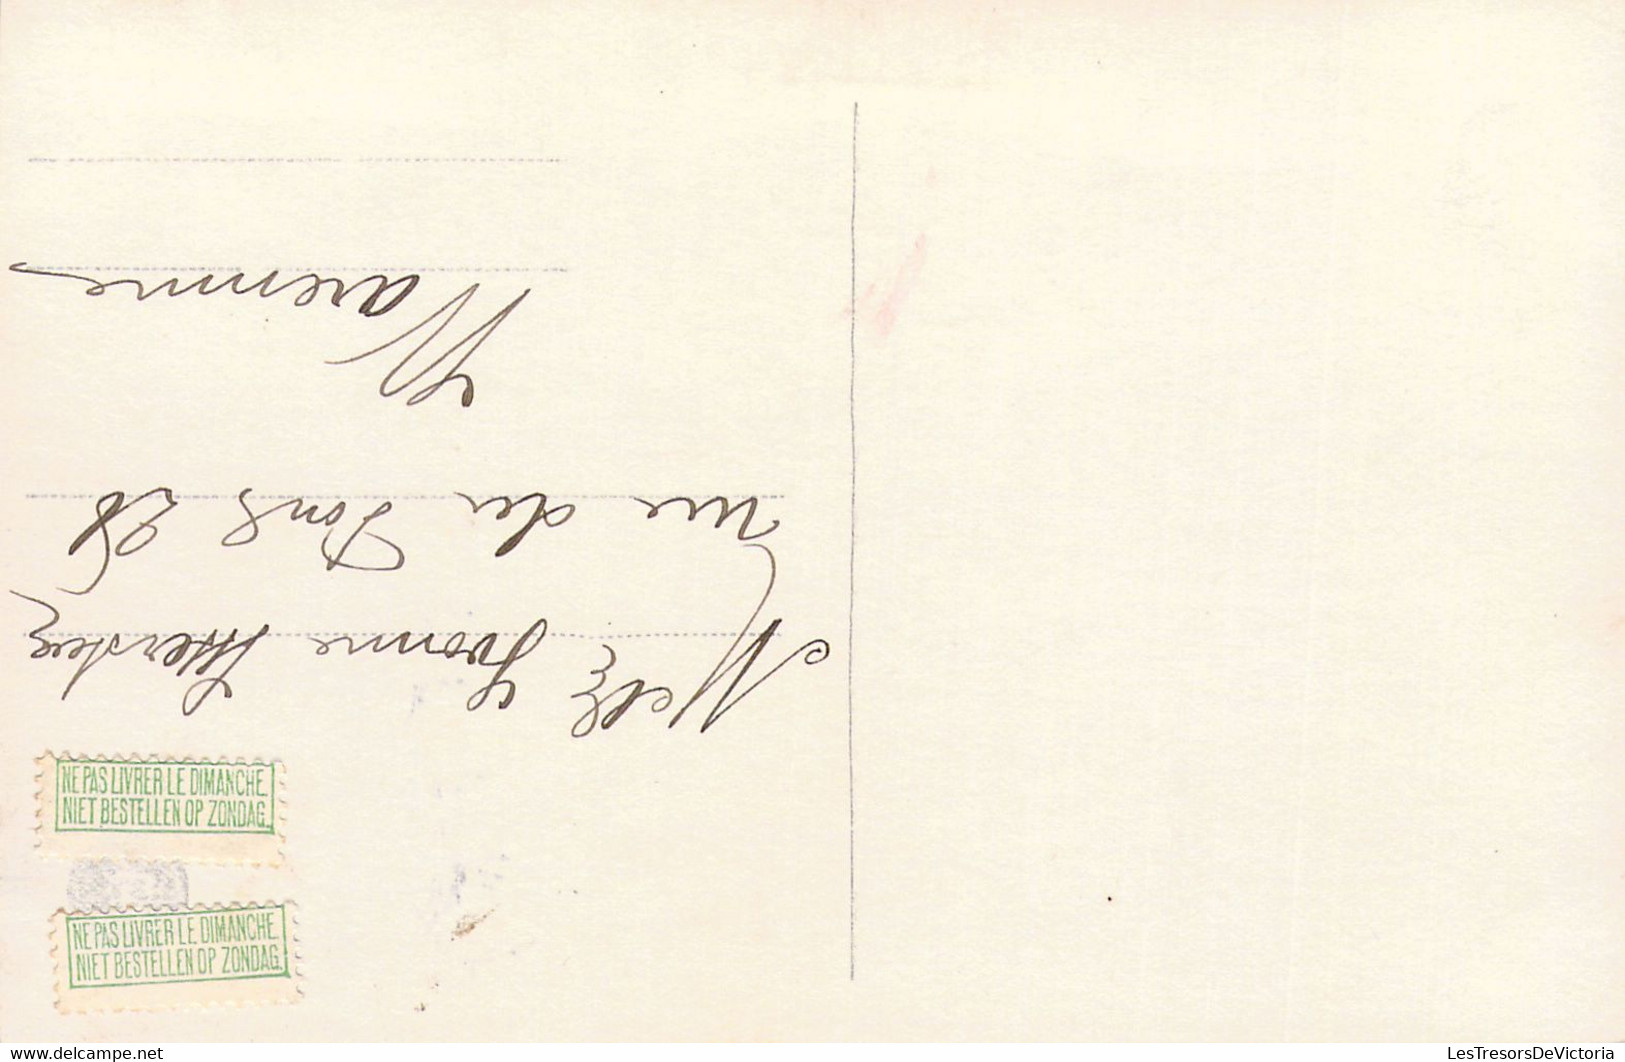 Melle Yvonne
rue du Pont 28
Waremme
NE PAS LIVRER LE DIMANCHE.
NIET BESTELLEN OP ZONDAG.
NE PAS LIVRER LE DIMANCHE.
NIET BESTELLEN OP ZONDAG.
delcampe.net
LesTresorsDeVictoria